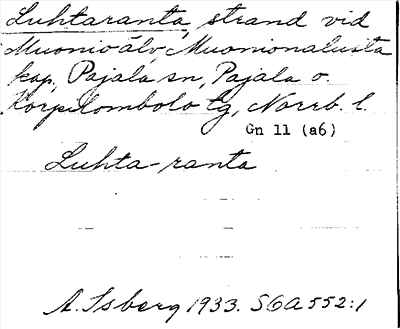 Luhtaranta, strand vid
Muonio älv, Muonionalusta
kap, Pajala sn, Pajala o.
Korpilombolo tg, Norrb. l.
Gn 11 (a6)
Luhta-ranta
A. Isberg 1933. SGA 552:1